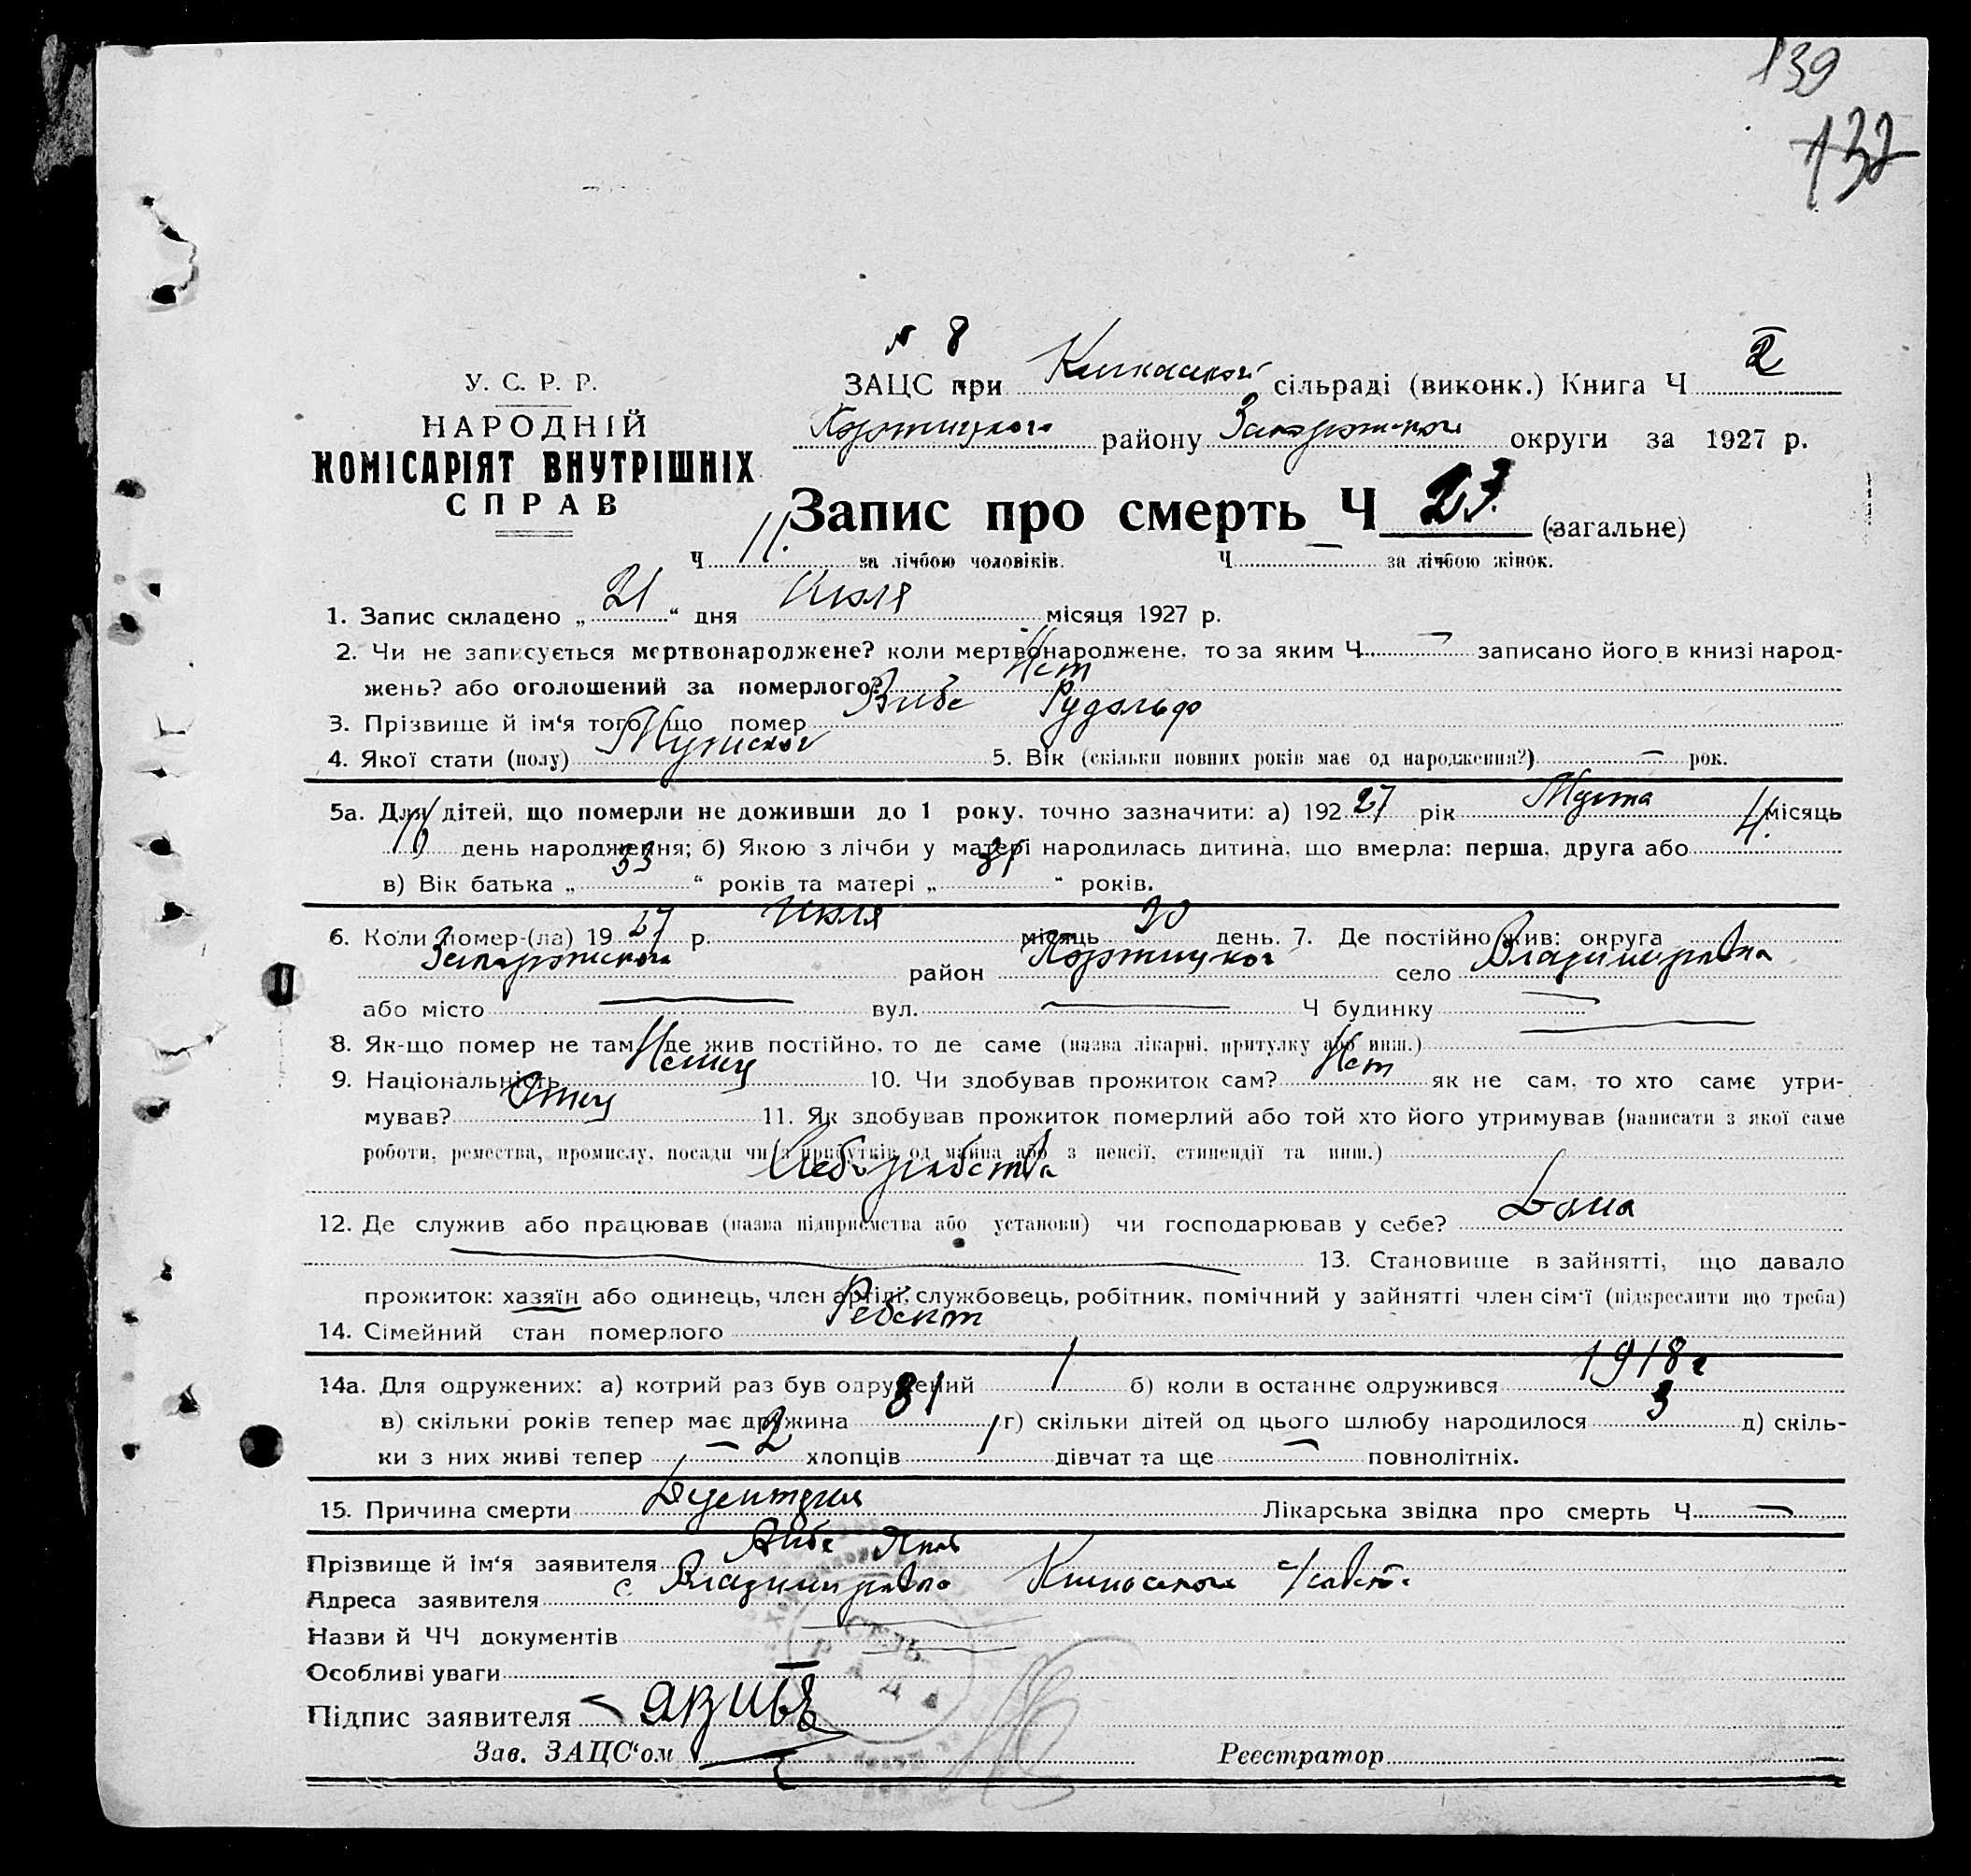 139
132
№ 8
У. С. Р. Р.
НАРОДНІЙ
КОМІСАРІЯТ ВНУТРІШНІХ
СПРАВ
ЗАЦС при Кичкасской сільраді (виконк.) Книга Ч 2
Хортицкого району Запорожского округи за 1927 р.
Запис про смерть Ч 23 (загальне)
Ч 11. за лічбою чоловіків. Ч — за лічбою жінок.
1. Запис складено „ 21 “ дня Июля місяця 1927 р.
2. Чи не записується мертвонароджене? коли мертвонароджене, то за яким Ч — записано його в книзі народ-
жень? або оголошений за померлого? Нет
3. Прізвище й ім‘я того, що помер Вибе Рудольф
4. Якої стати (полу) Мужской 5. Вік (скільки повних років має од народження?) — рок.
5а. Для дітей, що померли не доживши до 1 року, точно зазначити: а) 192 27 рік Марта місяць
16 день народження; б) Якою з лічби у матері народилась дитина, що вмерла: перша, друга або 4.
в) Вік батька „ 33 “ років та матері „ 31 “ років.
6. Коли помер-(ла) 19 27 р. Июля місяць 20 день. 7. Де постійно жив: округа
Запорожского район Хортицкого село Владимировка
або місто — вул. — Ч будинку —
8. Як-що помер не там, де жив постійно, то де саме (назва лікарні, притулку або инш.) —
9. Національність Немец 10. Чи здобував прожиток сам? Нет як не сам, то хто саме утри-
мував? Отец 11. Як здобував прожиток померлий або той хто його утримував (написати з якої саме
роботи, ремества, промислу, посади чи з прибутків од майна або з пенсії, стипендії та инш.)
Хлеборобства
12. Де служив або працював (назва підприємства або установи) чи господарював у себе? Дома
— 13. Становище в зайнятті, що давало
прожиток: хазяїн або одинець, член артілі, службовець, робітник, помічний у зайнятті член сім‘ї (підкреслити що треба)
14. Сімейний стан померлого Ребенок
14а. Для одружених: а) котрий раз був одружений 1 б) коли в останнє одружився 1918 г
в) скільки років тепер має дружина 31 г) скільки дітей од цього шлюбу народилося 3 д) скіль-
ки з них живі тепер — 2 хлопців 1 дівчат та ще — повнолітніх.
15. Причина смерти Дизентерия Лікарська звідка про смерть Ч —
Прізвище й ім‘я заявителя Вибе Яков
Адреса заявителя с Владимировка Кичкасского с/совета
Назви й ЧЧ документів —
Особливі уваги —
Підпис заявителя ЯВибе
Зав. ЗАЦС‘ом Реєстратор —